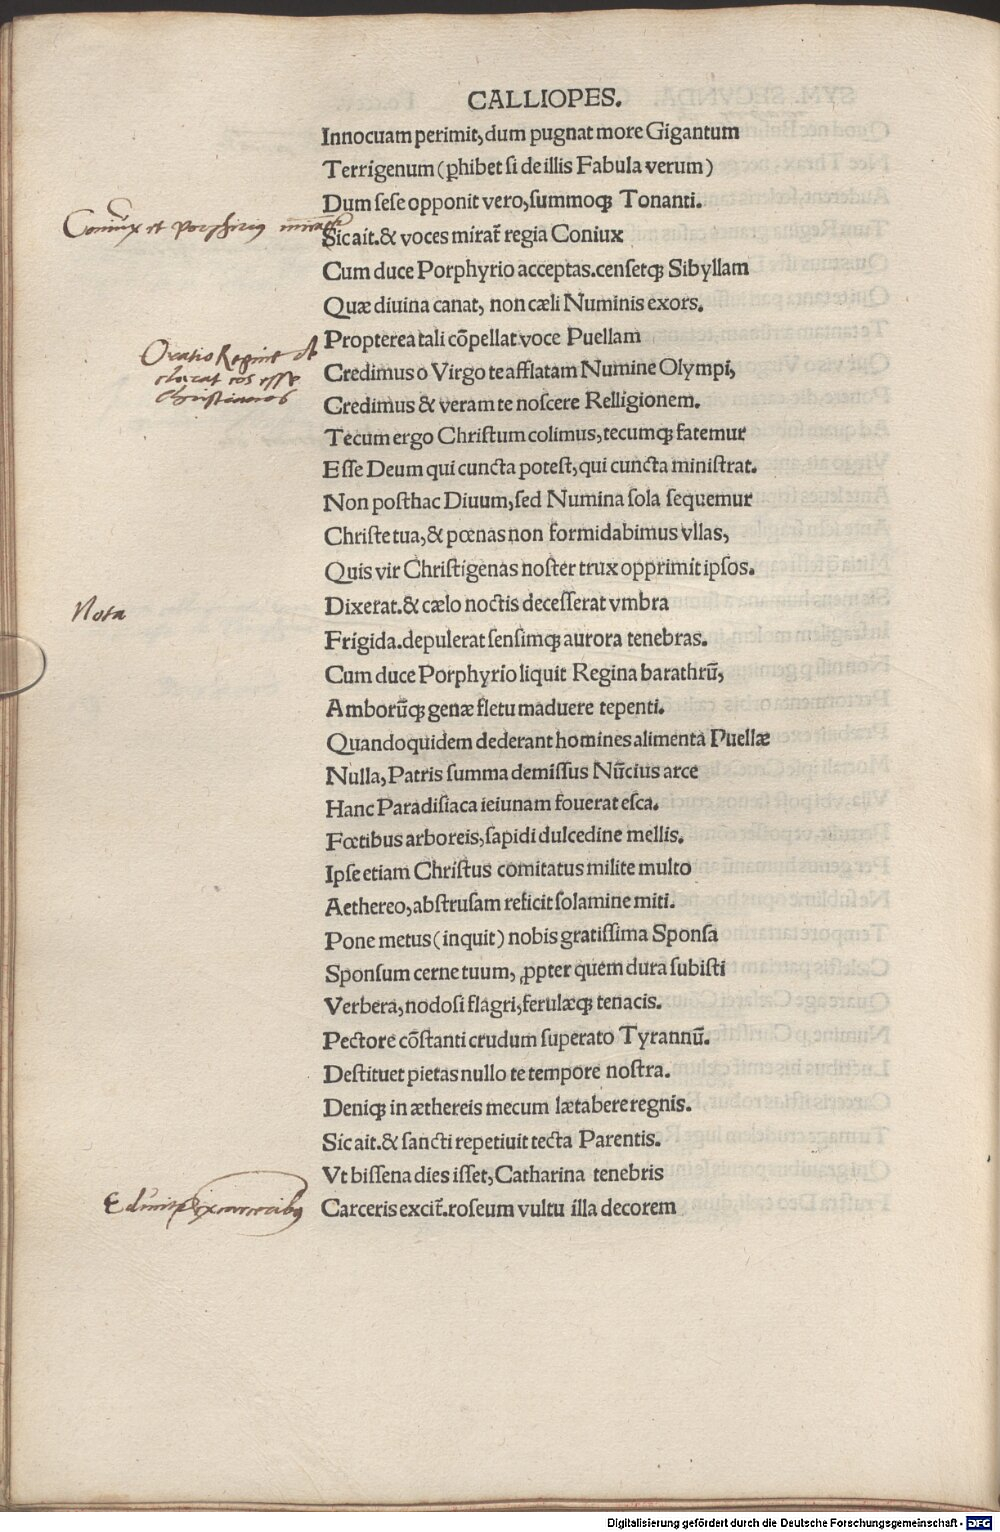 CALLIOPES.
Innocuam perimit, dum pugnat more Gigantum
Terrigenum (ꝑhibet si de illis Fabula verum)
Dum sese opponit vero, summoqꝫ Tonanti.
Coniux et porphirius
Sic ait. & voces mirat᷑ regia Coniux
Cum duce Porphyrio acceptas. censetqꝫ Sibyllam
Quæ diuina canat, non cæli Numinis exors.
Propterea tali cõpellat voce Puellam
Oratio Reginæ
Credimus o Virgo te afflatam Numine Olympi,
eos esse
christianos
Credimus & veram te noscere Relligionem.
Tecum ergo Christum colimus, tecumqꝫ fatemur
Esse Deum qui cuncta potest, qui cuncta ministrat.
Non posthac Diuum, sed Numina sola sequemur
Christe tua, & pœnas non formidabimus vllas,
Quis vir Christigenas noster trux opprimit ipsos.
Nota
Dixerat. & cælo noctis decesserat vmbra
Frigida. depulerat sensimqꝫ aurora tenebras.
Cum duce Porphyrio liquit Regina barathrũ,
Amborũqꝫ genæ fletu maduere tepenti.
Quandoquidem dederant homines alimenta Puellæ
Nulla, Patris summa demissus Nũcius arce
Hanc Paradisiaca ieiunam fouerat esca.
Fœtibus arboreis, sapidi dulcedine mellis.
Ipse etiam Christus comitatus milite multo
Aethereo, abstrusam reficit solamine miti.
Pone metus (inquit) nobis gratissima Sponsa
Sponsum cerne tuum, ꝓpter quem dura subisti
Verbera, nodosi flagri, ferulæqꝫ tenacis.
Pectore cõstanti crudum superato Tyrannũ.
Destituet pietas nullo te tempore nostra.
Deniqꝫ in æthereis mecum lætabere regnis.
Sic ait. & sancti repetiuit tecta Parentis.
Vt bissena dies isset, Catharina tenebris
Carceris excit᷑. roseum vultu illa decorem